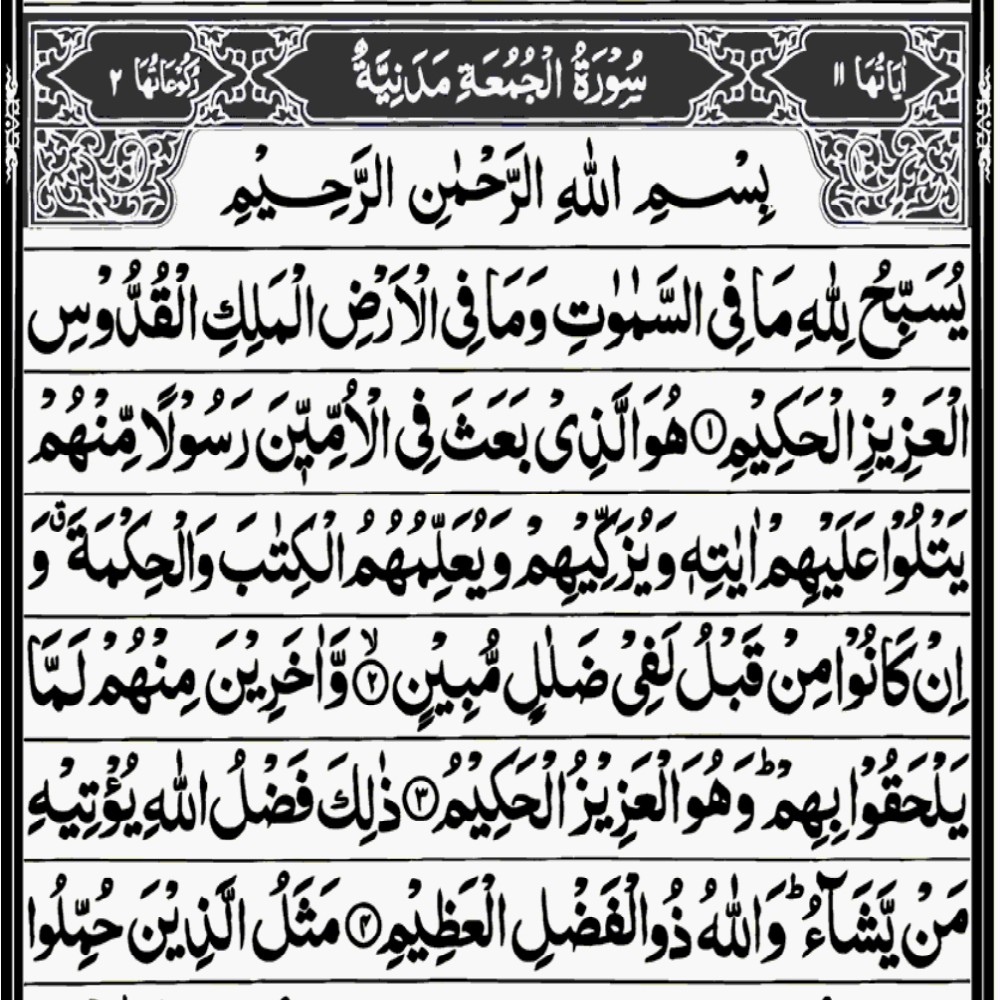 اٰيَاتُهَا ١١ سُوْرَةُ الْجُمُعَةِ مَدَنِيَّةٌ رُكُوْعَاتُهَا ٢
بِسْمِ اللّٰهِ الرَّحْمٰنِ الرَّحِيْمِ
يُسَبِّحُ لِلّٰهِ مَا فِى السَّمٰوٰتِ وَمَا فِى الْاَرْضِ الْمَلِكِ الْقُدُّوْسِ
الْعَزِيْزِ الْحَكِيْمِ ① هُوَ الَّذِىْ بَعَثَ فِى الْاُمِّيّٖنَ رَسُوْلًا مِّنْهُمْ
يَتْلُوْا عَلَيْهِمْ اٰيٰتِهٖ وَيُزَكِّيْهِمْ وَيُعَلِّمُهُمُ الْكِتٰبَ وَالْحِكْمَةَ ۗ وَ
اِنْ كَانُوْا مِنْ قَبْلُ لَفِىْ ضَلٰلٍ مُّبِيْنٍ ② ۙ وَّاٰخَرِيْنَ مِنْهُمْ لَمَّا
يَلْحَقُوْا بِهِمْ ؕ وَهُوَ الْعَزِيْزُ الْحَكِيْمُ ③ ذٰلِكَ فَضْلُ اللّٰهِ يُؤْتِيْهِ
مَنْ يَّشَآءُ ؕ وَاللّٰهُ ذُو الْفَضْلِ الْعَظِيْمِ ④ مَثَلُ الَّذِيْنَ حُمِّلُوا